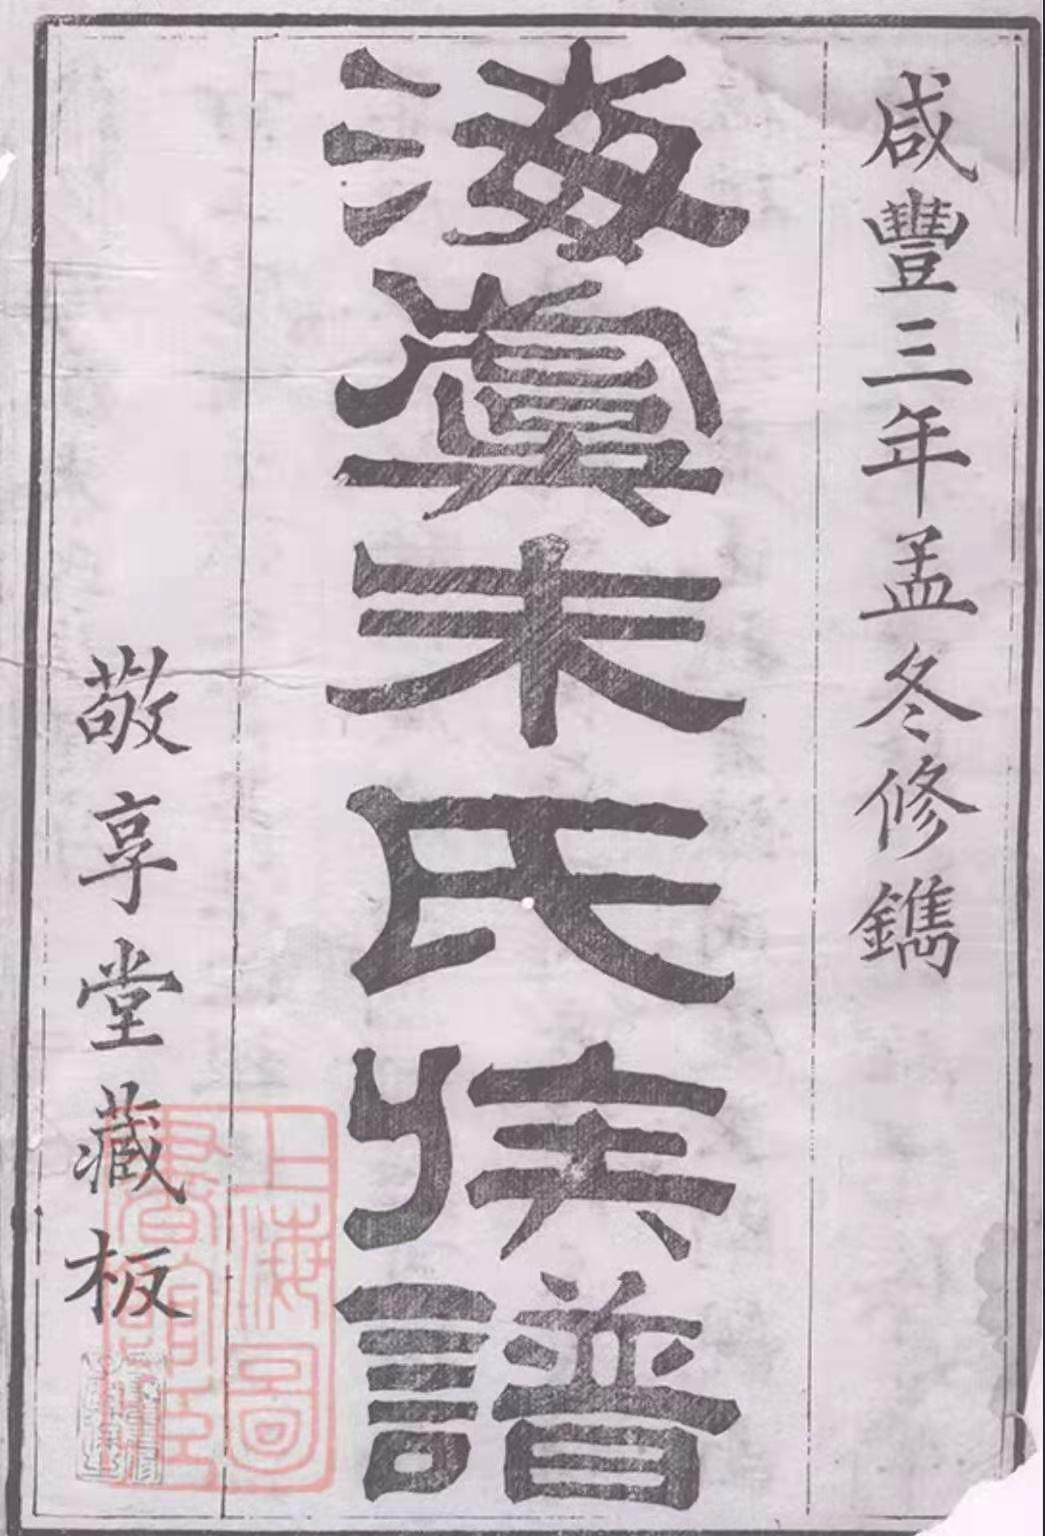 咸豐三年孟冬修鐫
海虞朱氏族譜
敬享堂藏板
上海圖
書館藏